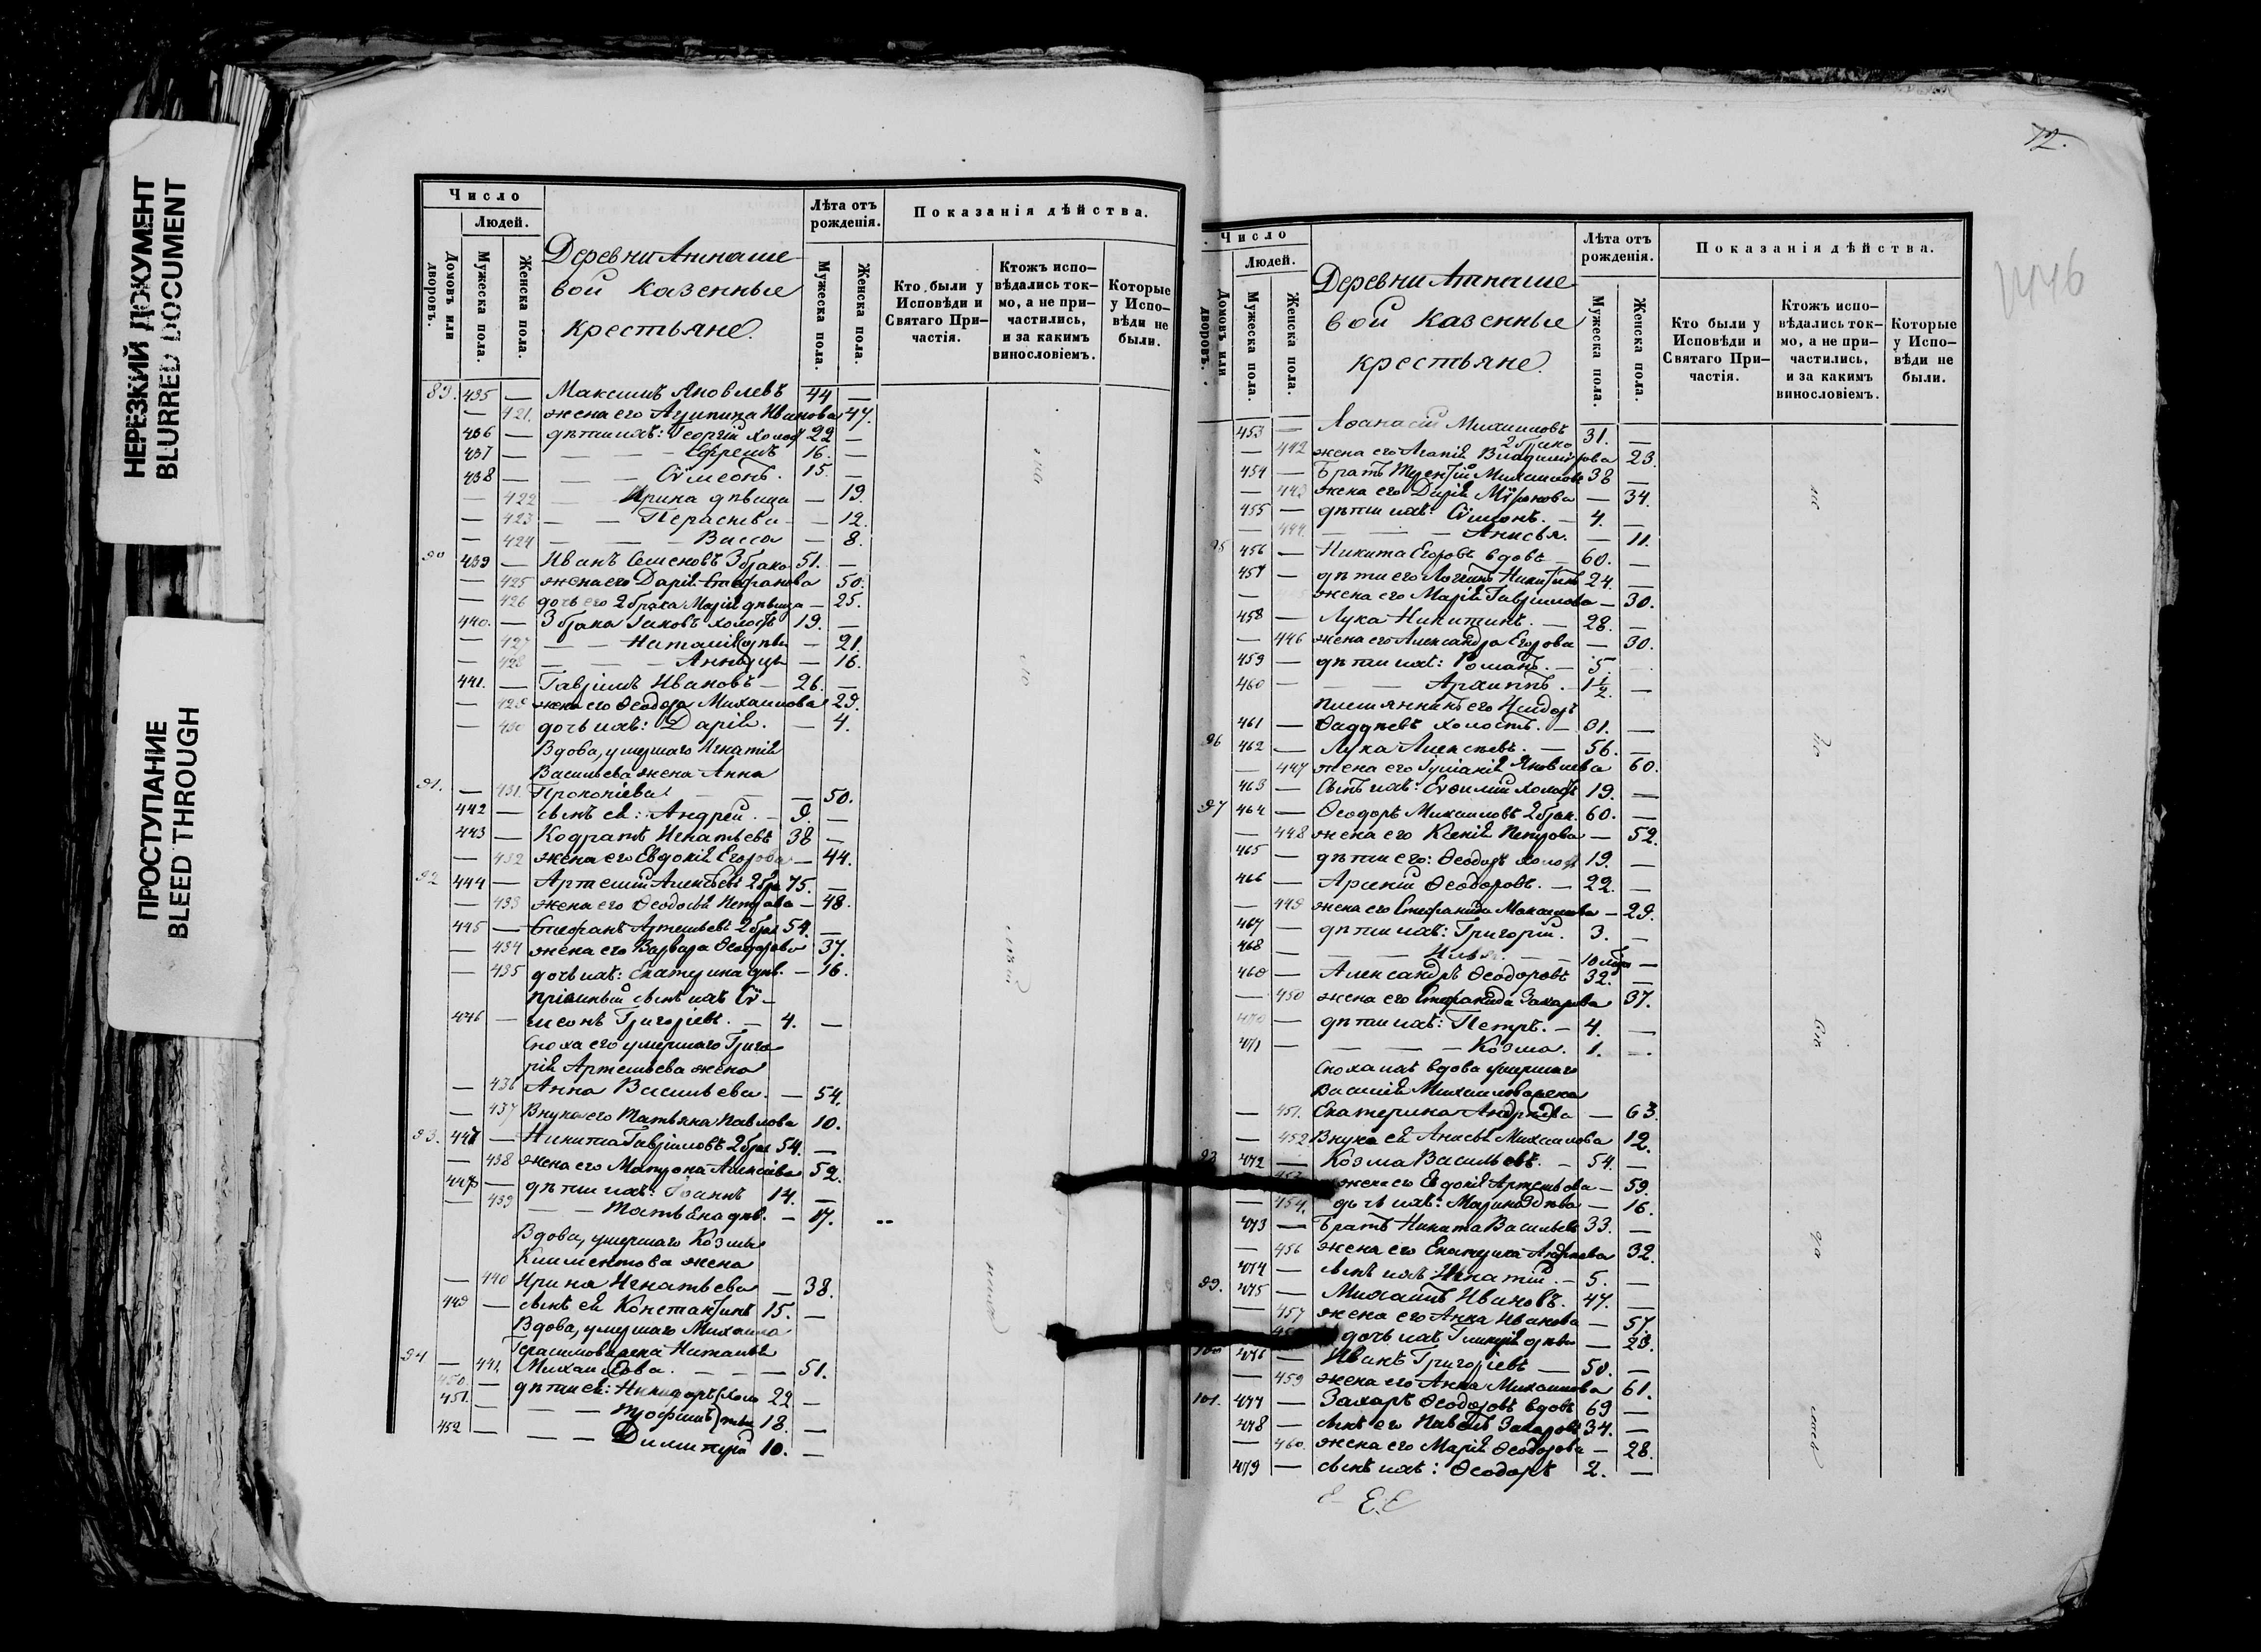 НЕРЕЗКИЙ ДОКУМЕНТ
BLURRED DOCUMENT
ПРОСТУПАНИЕ
BLEED THROUGH
Число
Людей.
Домовъ или дворовъ.
Мужеска пола.
Женска пола.
Деревни Атнаше
вой казенные
крестьяне.
Лѣта отъ рожденія.
Мужеска пола.
Женска пола.
Показанія дѣйства.
Кто были у Исповѣди и Святаго Причастія.
Ктожъ исповѣдались токмо, а не причастились, и за какимъ винословіемъ.
Которые у Исповѣди не были.
89. 435 — Максимъ Яковлевъ 44 —
— 421. жена его Акулина Иванова 47.
436 — дѣти ихъ: Георгій холос 22 —
437 — — — — Ефремъ 16. —
438 — — — Сѵмеонъ. 15. —
— 422 — Ирина дѣвица — 19.
— 423 — — Параскева — — 12.
— 424 — — — Васса — 8.
90 439 — Иванъ Семеновъ 3 брака 51. —
— 425 жена его Дарія Стефанова 50.
— 426 дочь его 2 брака Марія дѣвица — 25.
440. — 3 брака Іаковъ холостъ 19. —
— 427 — — Наталія дѣв — 21.
— 428 — — — Анна — 16.
441. — Гавріилъ Ивановъ — 26. —
— 429 жена его Ѳеодора Михаилова 29.
— 430 дочь ихъ: Дарія. — 4.
Вдова, умершаго Игнатія
Васильева жена Анна
91. — 431. Прокопіева — — — 50.
442 — сынъ ея: Андрей. — 9. —
443 — Кодратъ Игнатьевъ 38 —
— 432 жена его Евдокія Егорова — 44.
92 444 — Артемій Алексѣевъ 2 бра 75. —
— 433 жена его Ѳеодосія Петрова — 48.
445 — Стефанъ Артемьевъ 2 брак 54. —
— 434 жена его Варвара Ѳеодорова 37.
— 435 дочь ихъ: Екатерина дѣв. — 16.
пріемный сынъ ихъ Сѵ-
446 — меонъ Григоріевъ. — 4. —
Сноха его умершаго Григо
рія Артемьева жена
— 436 Анна Васильева. — 54.
— 437 Внука его Татьяна Павлова 10.
93. 447 — Никита Гавріиловъ 2 брак 54. —
— 438 жена его Матрона Алексіева 52.
448 — дѣти ихъ: Іоаннъ 14. —
— 439 — — Татьяна дѣв. — 17.
Вдова, умершаго Козмы
Климентова жена
— 440 Ирина Игнатьева — 38.
449 — сынъ ея Константинъ 15. —
Вдова, умершаго Михаила
Герасимова жена Наталья
94 — 441. Михаилова. — — — 51.
450. — дѣти ея: Никифоръ холо 22 —
451. — — — Трофимъ 18. —
452 — — — Димитрій 10. —
72.
Число
Людей.
Домовъ или дворовъ.
Мужеска пола.
Женска пола.
Деревни Атнаше
вой казенные
крестьяне.
Лѣта отъ рожденія.
Мужеска пола.
Женска пола.
Показанія дѣйства.
Кто были у Исповѣди и Святаго Причастія.
Ктожъ исповѣдались токмо, а не причастились, и за какимъ винословіемъ.
Которые у Исповѣди не были.
453 — Аѳанасій Михаиловъ 31. —
2 брака
— 442 жена его Агапія Владимірова 23.
454 — Братъ Михаиловъ 38 —
— 443 жена его Дарія Мѵронова — 34.
455 — дѣти ихъ: Сѵмеонъ. — 4. —
— 444 — — — Анисья. — 11.
95 456 — Никита Егоровъ вдовъ — 60. —
457 — дѣти его Логгинъ Никитинъ 24. —
— жена его Марія Гавріилова — 30.
458 — Лука Никитинъ. — 28. —
— 446 жена его Александра Егорова — 30.
459 — дѣти ихъ: Романъ. — 5. —
460 — — — Архиппъ. — 1 1/2. —
племянникъ его Исидоръ
461 — Ѳаддѣевъ холостъ. — 31. —
96 462 — Лука Алексѣевъ. — 56. —
— 447 жена его Іуліанія Яковлева 60.
463 — Сынъ ихъ: Евѳимій холостъ 19. —
97 464 — Ѳеодоръ Михаиловъ 2 брак. 60. —
— 448 жена его Ксенія Петрова — 52.
465 — дѣти его: Ѳеодоръ холос 19. —
466 — Арсеній Ѳеодоровъ. — 22. —
— 449 жена его Стефанида Максимова — 29.
467 — дѣти ихъ: Григорій. 3. —
468 — — — Илья. — — 10 мѣся —
469 — Александръ Ѳеодоровъ 32. —
— 450 жена его Стефанида Захарова 37.
470 — дѣти ихъ: Петръ. — 4. —
471 — — — — Козма. 1. —
Сноха ихъ вдова умершаго
Василія Михаилова жена
— 451. Екатерина Андреева — 63.
— 452 Внука ея Анисья Михаилова 12.
98 472 — Козма Васильевъ. — 54. —
жена его Евдокія Артемьева — 59.
— 454. дочь ихъ: Марина дѣва — 16.
473 — Братъ Никита Васильевъ 33. —
— 456 жена его Екатерина Андреева 32.
474 — сынъ ихъ Игнатій. — 5. —
99. 475 — Михаилъ Ивановъ. 47. —
— 457 жена его Анна Иванова — 57.
дочь ихъ Гликерія дѣва — 23.
100 476 — Иванъ Григоріевъ — 50. —
— 459 жена его Анна Михаилова 61.
101. 477 — Захаръ Ѳеодоровъ вдовъ 69 —
478 — сынъ его Павелъ Захаровъ 34. —
— 460. жена его Марія Ѳеодорова — 28.
479 — сынъ ихъ: Ѳеодоръ 2. —